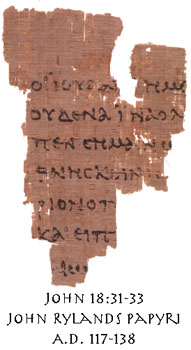 ΟΙ ΙΟΥΔΑΙ ΗΜΕ
ΟΥΔΕΝΑ ΙΝΑ Ο Λ
ΠΕΝ CΗΜΑΙΝΩ
ΡΙΟΝ Ο Π
ΚΑΙ ΕΙΠ
JOHN 18:31-33
JOHN RYLANDS PAPYRI
A.D. 117-138